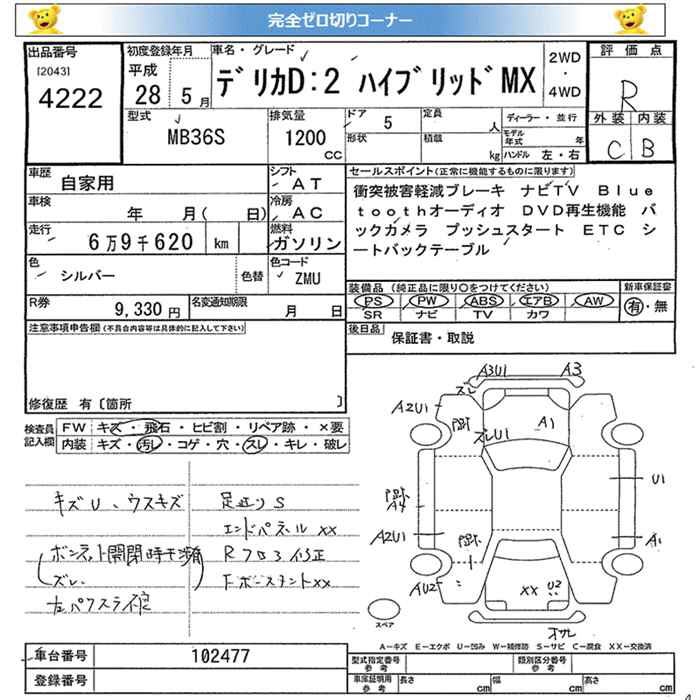 完全ゼロ切りコーナー
出品番号
[2043]
4222
初度登録年月
平成
28 5月
車名・グレード
デリカD:2 ハイブリッドMX
2WD
・
4WD
評価点
R
外装 内装
C B
型式
MB36S
排気量
1200
CC
ドア 5
形状
定員 人
積載 kg
ディーラー・並行
モデル年式 年
ハンドル 左・右
車歴
自家用
シフト
AT
車検
年 月( 日)
冷房
AC
走行
6万9千620 km
燃料
ガソリン
色
シルバー
色替
色コード
ZMU
R券
9,330円
名変通知期限
月 日
セールスポイント(正常に機能するものに限ります)
衝突被害軽減ブレーキ ナビTV Blue
toothオーディオ DVD再生機能 バ
ックカメラ プッシュスタート ETC シ
ートバックテーブル
装備品 (純正品に限り○をつけてください)
PS PW ABS エアB AW
SR ナビ TV カワ
新車保証書
有・無
後日品
保証書・取説
注意事項申告欄(不具合内容等は具体的に記入して下さい)
修復歴 有〔箇所 〕
検査員
記入欄
FW キズ・飛石・ヒビ割・リペア跡・×要
内装 キズ・汚レ・コゲ・穴・スレ・キレ・破レ
キズU、ウスキズ
ボンネット開閉時干渉
ズレ、
足廻りS
エンドパネルXX
Rフロア修正
A3U1
A3
ズレ
A2U1
A1
ズレU1
U1
A4
A2U1
A1
AU2
XX U2
スペア
A—キズ E—エクボ U—凹み W—補修跡 S—サビ C—腐食 XX—交換済
車台番号
102477
登録番号
型式指定番号
参考
類別区分番号
参考
車庫証明用
参考
長さ cm
幅 cm
高さ cm